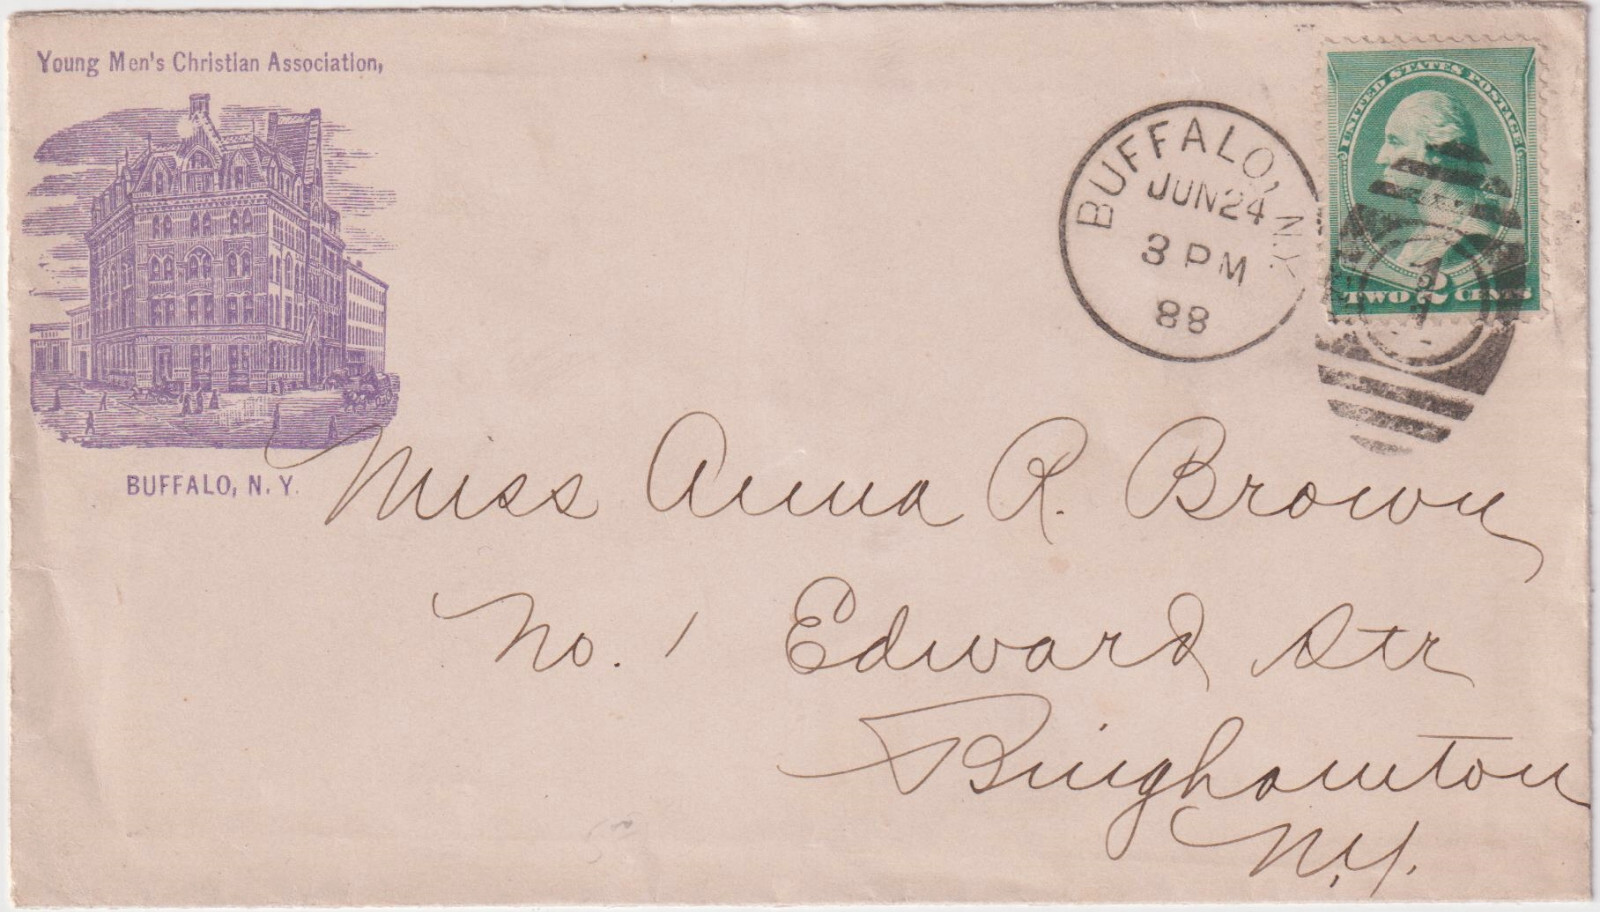 Young Men's Christian Association,
BUFFALO, N. Y.
BUFFALO, N.Y.
JUN 24
3 PM
88
UNITED STATES POSTAGE
TWO 2 CENTS
Miss Anna R. Brown
No. 1 Edward Str
Binghamton
N.Y.